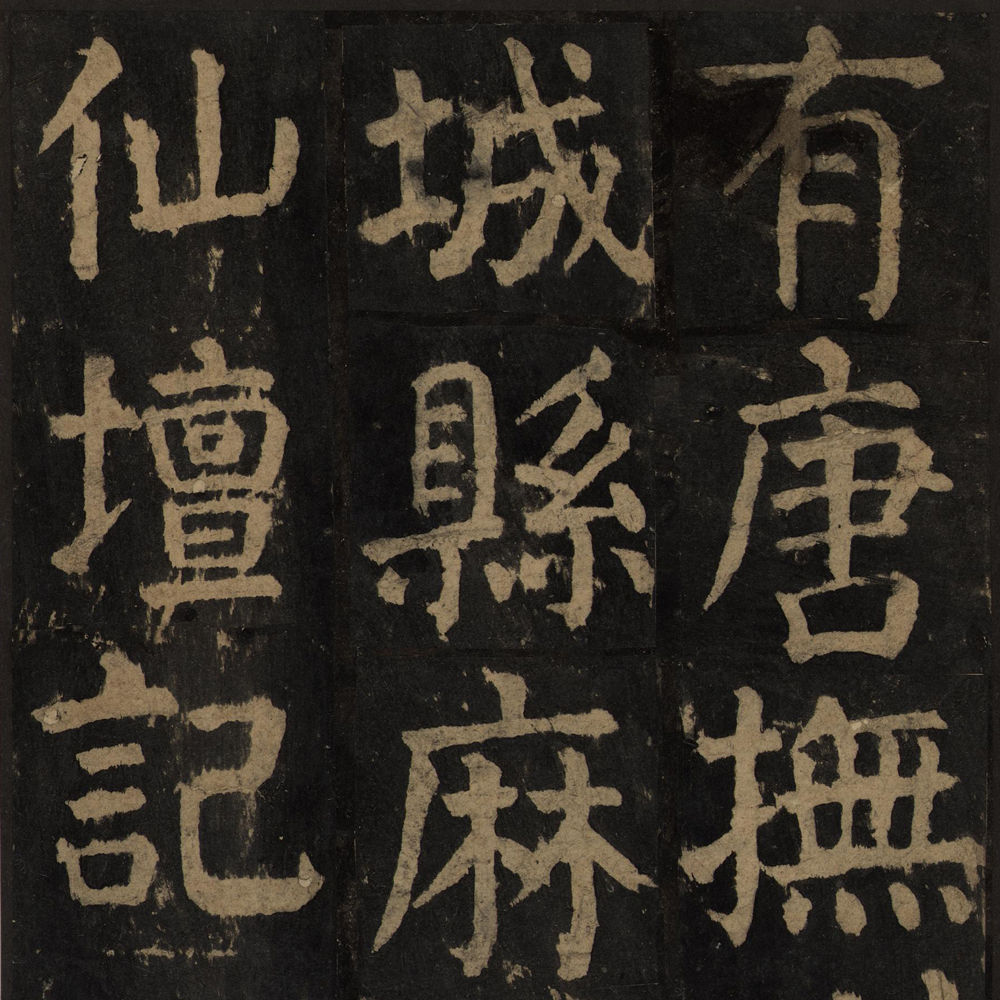 有唐撫
城縣麻
仙壇記